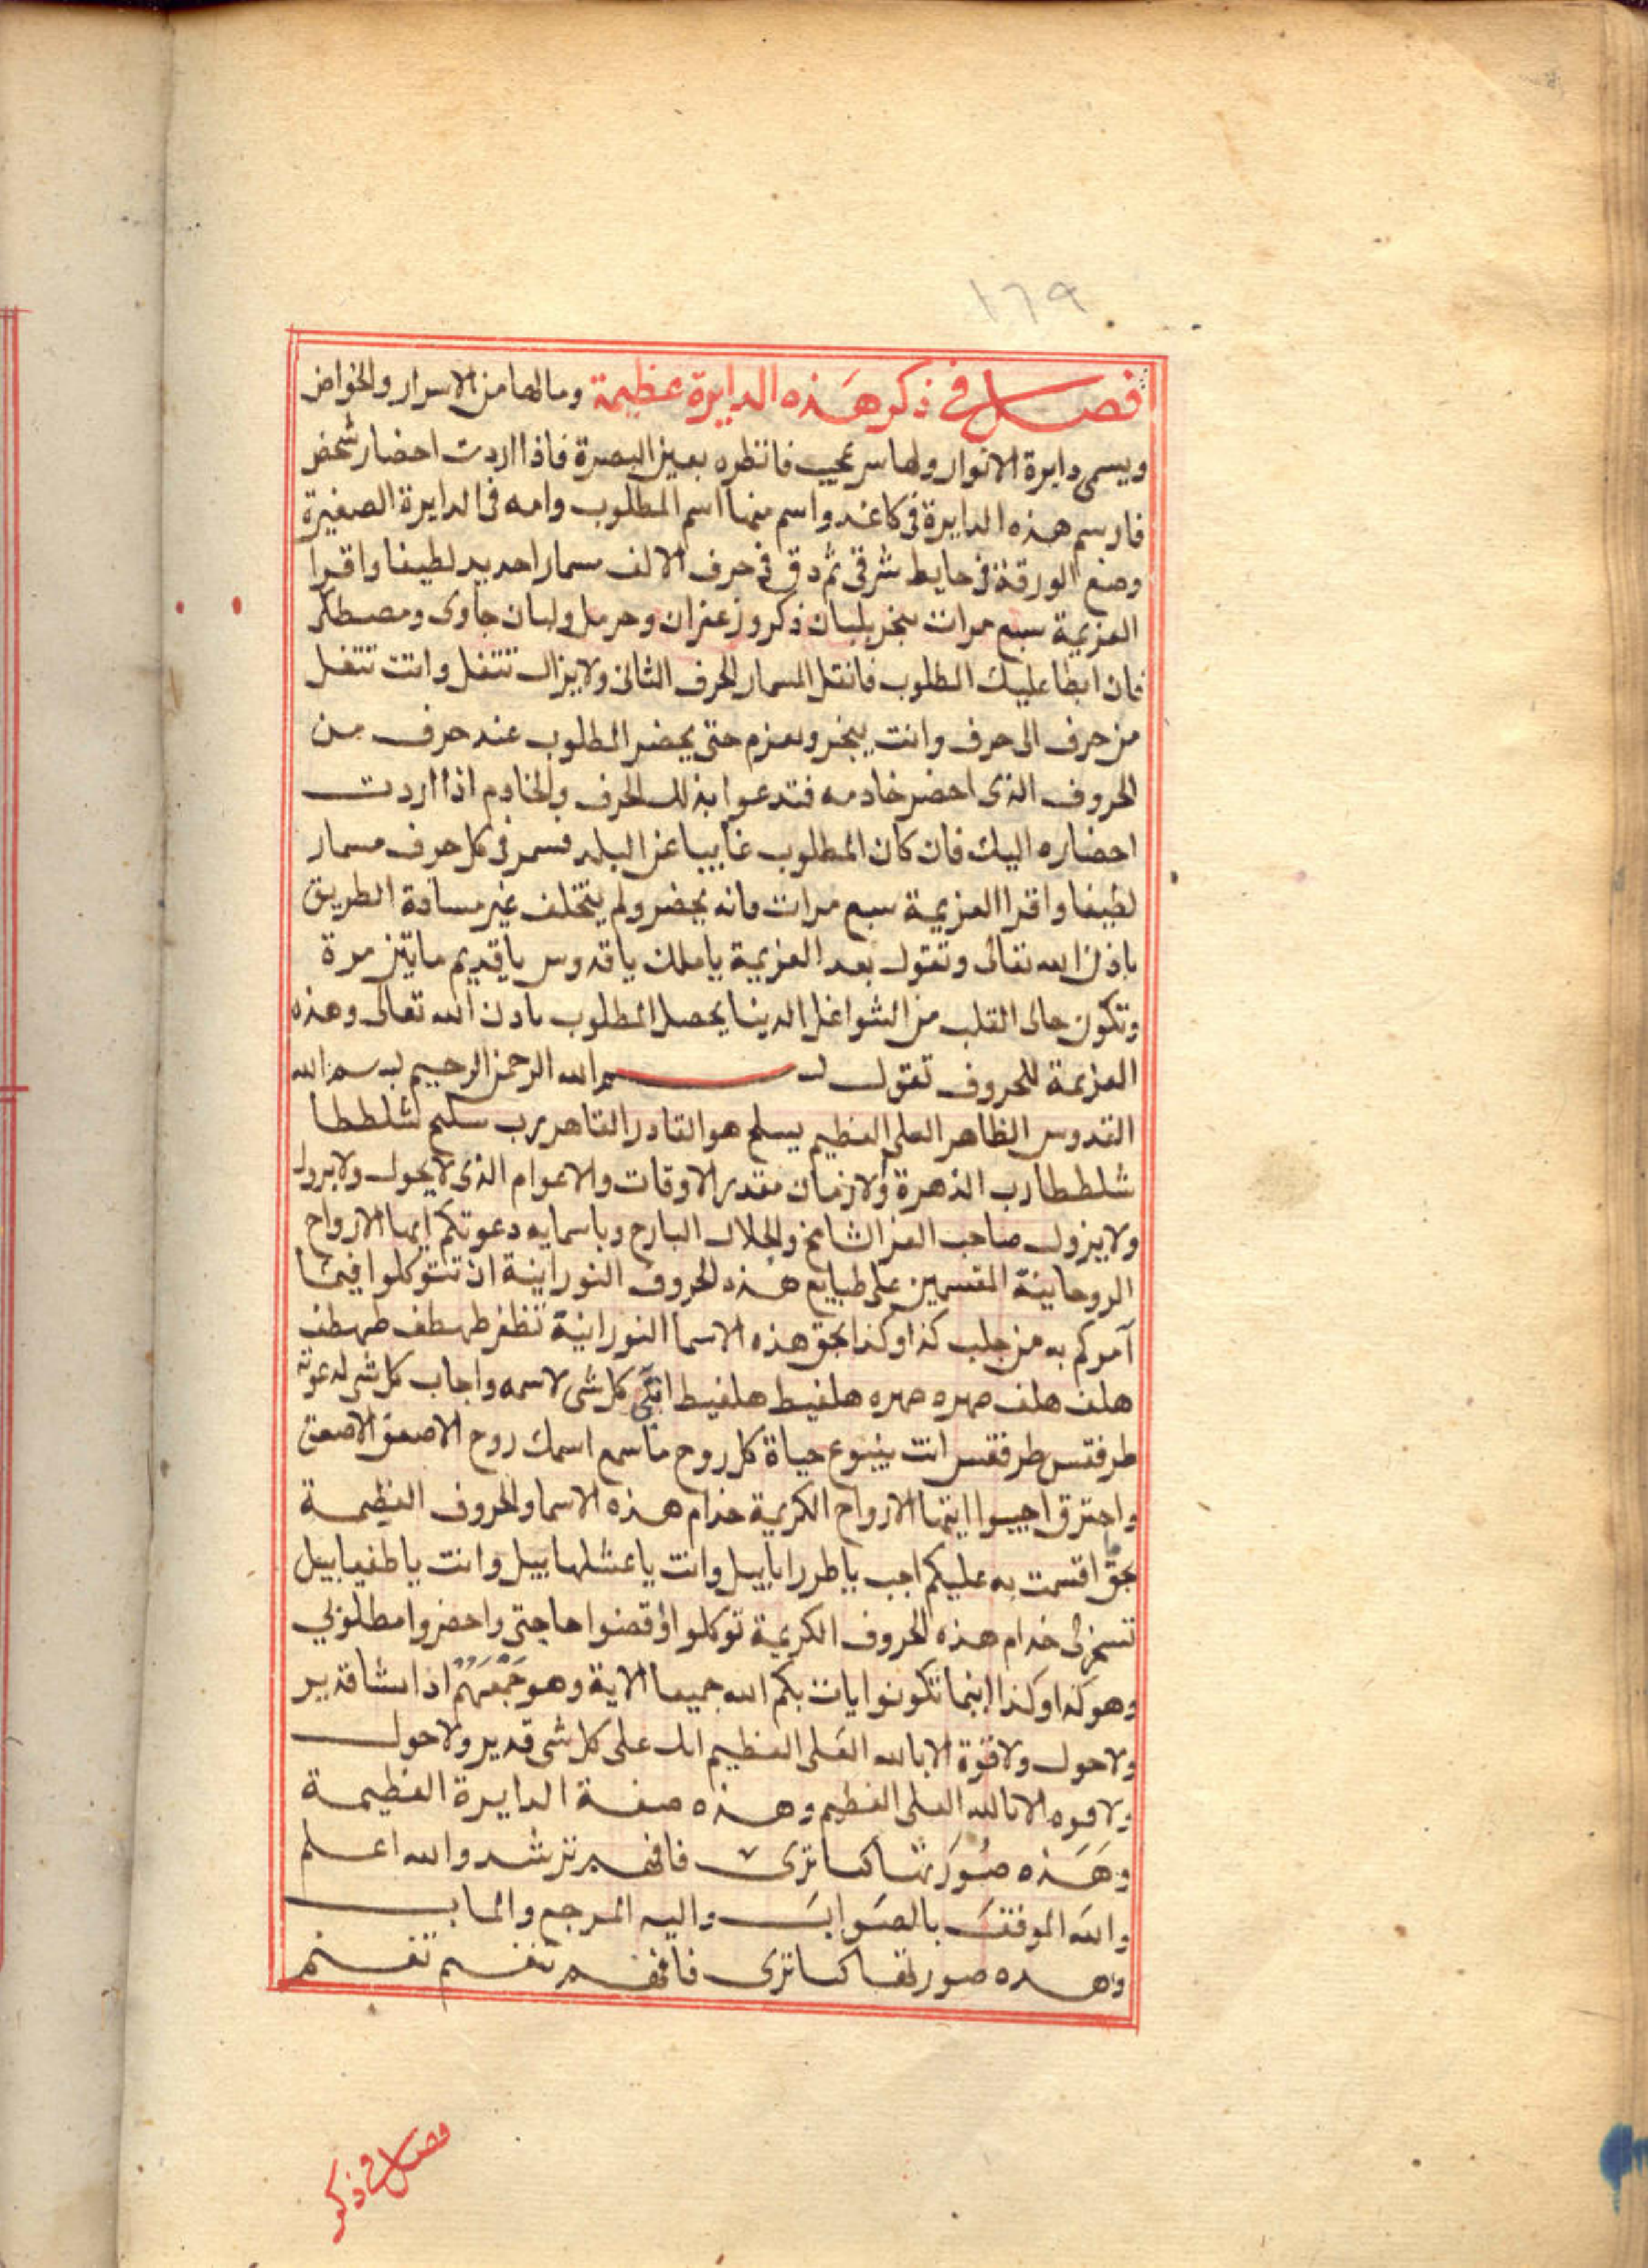 ١٦٩
فصل في ذكر هذه الدايرة عظيمة وما لها من الاسرار والخواص
ويسمى دايرة الانوار ولها سر عجيب فانظره بعين البصرة فاذا اردت احضار شخص
فارسم هذه الدايرة في كاغد واسم منها اسم المطلوب وامه في الدايرة الصغيرة
وضع الورقة في حايط شرقي ثم دق في حرف الالف مسمارا حديد لطيفا واقرا
العزيمة سبع مرات تبخر بلبان ذكر وزعفران وحرمل ولبان جاوى ومصطكى
فان ابطا عليك المطلوب فانقل المسمار للحرف الثاني ولا يزال تنتقل وانت تنتقل
من حرف الى حرف وانت تبخر وتعزم حتى يحضر المطلوب عند حرف من
الحروف الذى احضر خادمه فتدعوا بذلك الحرف والخادم اذا اردت
احضاره اليك فان كان المطلوب غايبا عن البلد فسمر في كل حرف مسمار
لطيفا واقرا العزيمة سبع مرات فانه يحضر ولم يتخلف غير مسافة الطريق
باذن الله تعالى وتقول بعد العزيمة يا ملك يا قدوس يا قديم مايتين مرة
وتكون خالى القلب من الشواغل الدينا يحصل المطلوب بادن الله تعالى وهذه
العزيمة للحروف تقول بسم الله الرحمن الرحيم بسم الله
القدوس الظاهر العلى العظيم يسلح هو القادر القاهر برب سلح لشلططا
شلططا رب الذهرة ولازمان مقدر الاوقات والاعوام الذى لا يحول ولا يرول
ولا يزول صاحب العز الشامخ والجلال البارح وباسمايه دعوتكم ايها الارواح
الروحانية المقسمين على طبايع هذه الحروف النورانية ان تتوكلوا فيما
آمركم به من جلب كذا وكذا بحق هذه الاسما النورانية تظفر طهطف طهطف
هلف هلف صهره صهره هلفيط هلفيط اتى كل شى لاسمه واجاب كل شى لدعوته
طرفقس طرفقس انت ينبوع حياة كل روح ما سمع اسمك روح الا صعق الا صعق
واحترق اجيبوا ايتها الارواح الكريمة خدام هذه الاسما والحروف العظيمة
بحق ما اقسمت به عليكم اجب يا طرراباييل وانت يا عشلهاييل وانت يا طفياييل
تسخر لى خدام هذه الحروف الكريمة توكلوا واقضوا حاجتى واحضروا مطلوبي
وهو كذا وكذا اينما تكونوا يات بكم الله جميعا الاية وهو جمعهم اذا يشا قدير
ولا حول ولا قوة الا بالله العلى العظيم انك على كل شى قدير ولا حول
ولا قوه الا بالله العلى العظيم وهذه صفة الدايرة العظيمة
وهذه صورتها كما ترى فافهم ترشد والله اعلم
والله الموفق بالصواب واليه المرجع والماب
وهده صورتها كما ترى فافهم تغنم تغنم
فصل في ذكر